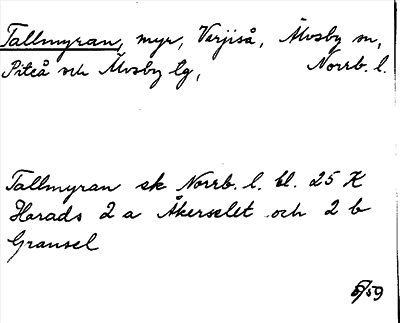 Tallmyran, myr, Verjiså, Älvsby sn,
Piteå och Älvsby tg, Norrb. l.
Tallmyran sk Norrb. l. bl. 25 K
Harads 2 a Åkerselet och 2 b
Gransel
5/59